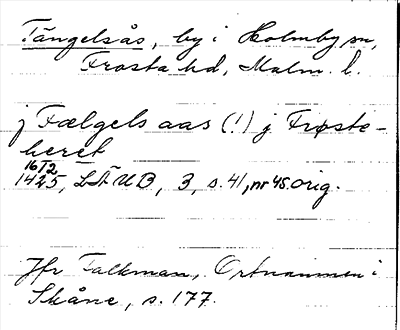 Tängelsås, by i Holmby sn,
Frosta hd, Malm. l.
j Fælgels aas (!) j Frøste-
heret
16/2
1425, LÄUB, 3, s. 41, nr 45. orig.
Jfr Falkman, Ortnamnen i
Skåne, s. 177.